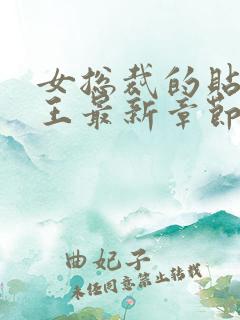 女总裁的贴
王最新章节
曲妃子
未经同意禁止转载